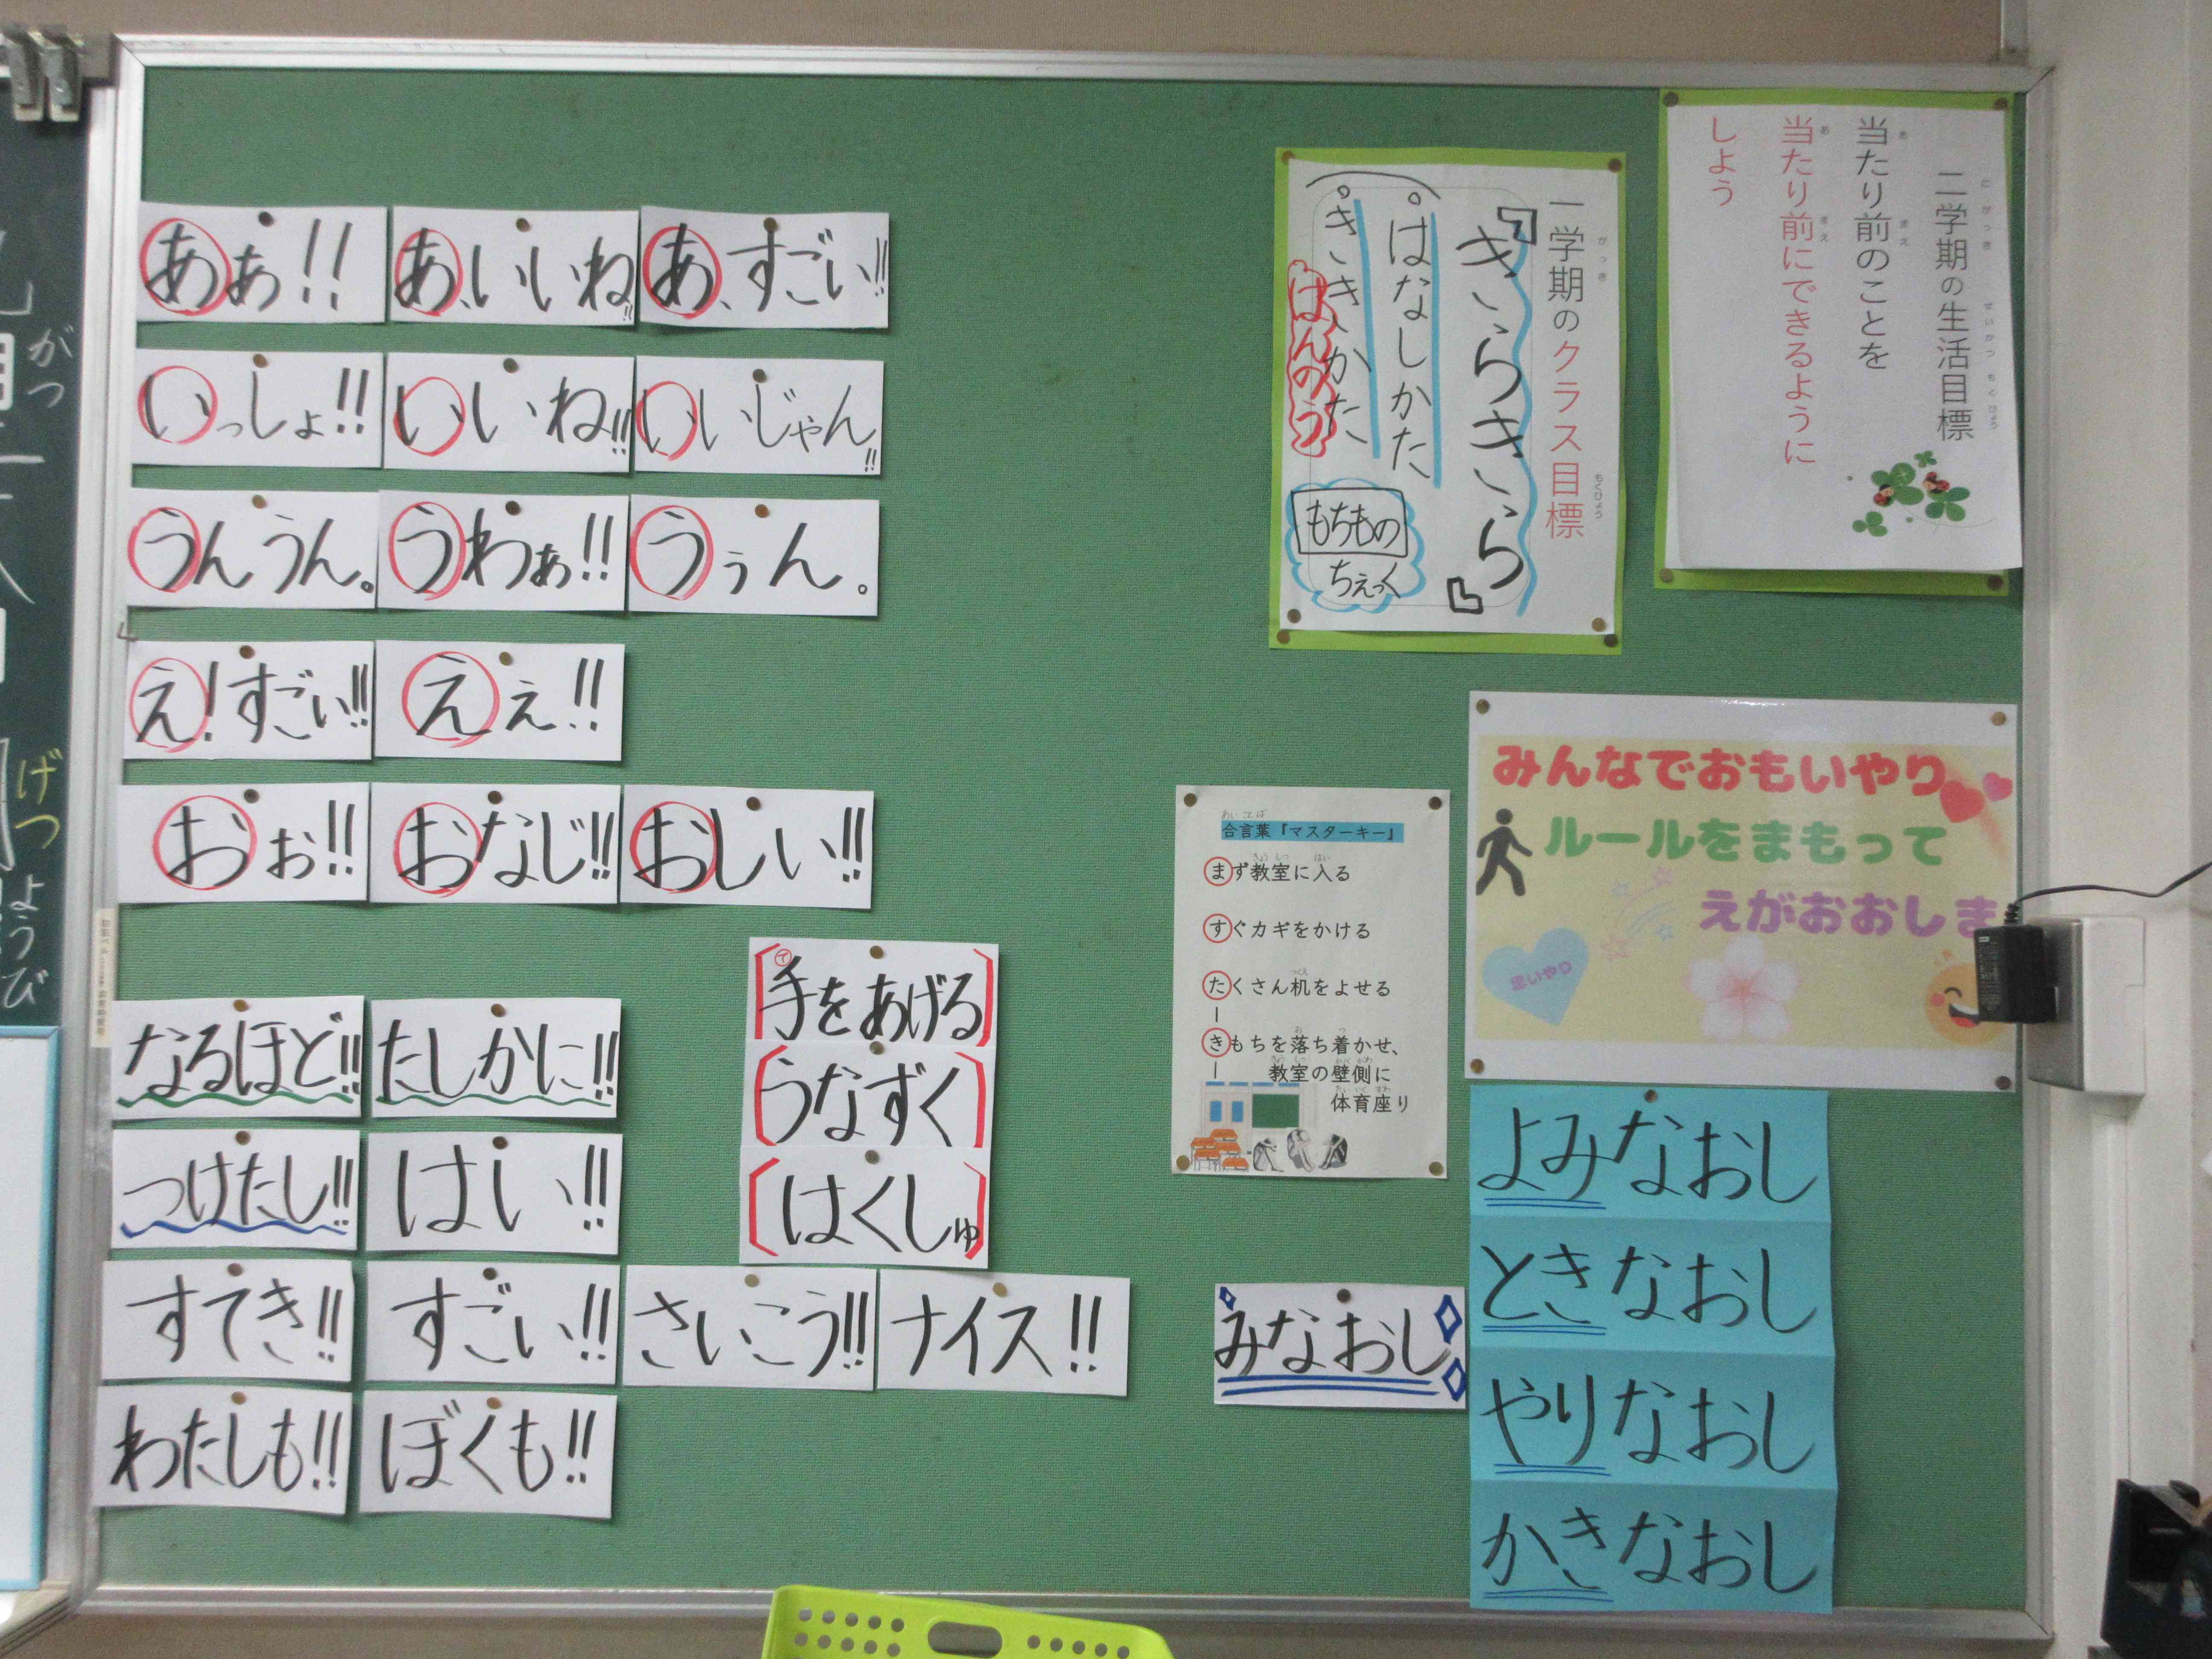 あぁ!!
あ、いいね!!
あ、すごい!!
いっしょ!!
いいね!!
いいじゃん!!
うんうん。
うわぁ!!
うぅん。
え!すごい!!
えぇ!!
おぉ!!
おなじ!!
おしい!!
なるほど!!
たしかに!!
つけたし!!
はい!!
すてき!!
すごい!!
さいこう!!
ナイス!!
わたしも!!
ぼくも!!
手をあげる
うなずく
はくしゅ
二学期の生活目標
当たり前のことを
当たり前にできるように
しよう
一学期のクラス目標
『きらきら』
。はなしかた
。ききかた
はんのう
もちもの
ちぇっく
合言葉『マスターキー』
まず教室に入る
すぐカギをかける
たくさん机をよせる
ー
きもちを落ち着かせ、
ー 教室の壁側に
体育座り
みんなでおもいやり
ルールをまもって
えがおおしま
思いやり
みなおし
よみなおし
ときなおし
やりなおし
かきなおし
がつ
げつようび